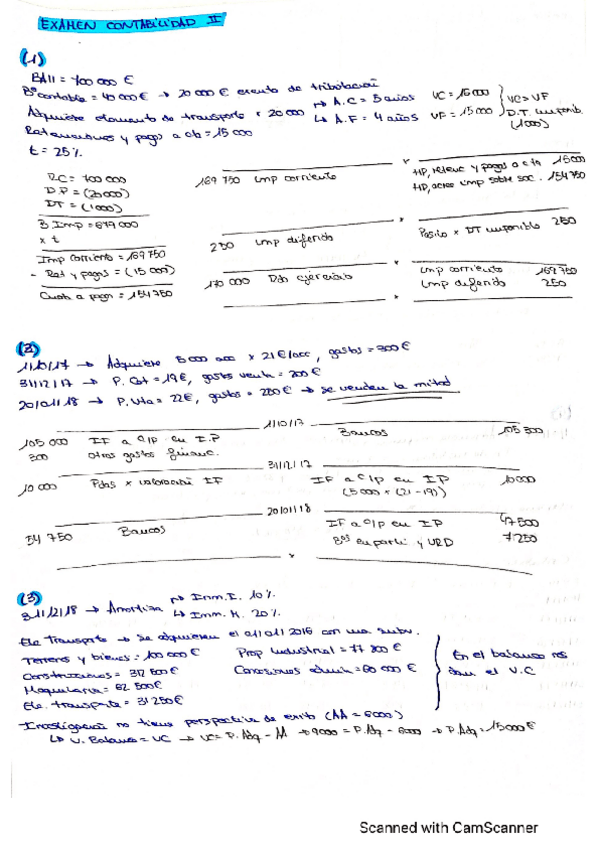 EXÁMEN CONTABILIDAD II
(1)
BAII = 700 000 €
Bº contable = 40 000 € → 20 000 € exento de tributación
Adquiere elemento de transporte x 20 000 ↦ A.C = 5 años VC = 16000 } VC > VF
↳ A.F = 4 años VF = 15 000 D.T. imponib.
Retenciones y pagos a cta = 15 000 (1000)
t = 25 %
RC = 700 000
D.P = (20 000)
DT = (1000)
B Imp = 679 000
x t
Imp corriente = 169 750
- Ret y pagos = (15 000)
Cuota a pagar = 154 750
x
169 750 Imp corriente HP, retenc y pagos a cta 15000
HP, acree imp sobre soc. 154 750
x
250 Imp diferido Pasivo x DT imponible 250
x
170 000 Rdo ejercicio Imp corriente 169 750
Imp diferido 250
x
(2)
11/10/17 → Adquiere 5 000 acc x 21 €/acc, gastos = 300 €
31/12/17 → P. Cot = 19 €, gastos venta = 200 €
20/01/18 → P. Vta = 22 €, gastos = 250 € → se venden la mitad
1/10/17
105 000 IF a C/P en I.P Bancos 105 300
300 Otros gastos financ.
31/12/17
10 000 Pdas x valoración IF IF a C/P en IP 10000
(5 000 x (21-19))
20/01/18
54 750 Bancos IF a C/P en IP 47 500
Bºs en parti y URD 7 250
x
(3)
31/12/18 → Amortiza ↦ Inm. I. 10 %
↳ Inm. M. 20 %
Ele Transporte → se adquieren el 01/01/2016 con una subv.
Terrenos y bienes = 100 000 € Prop Industrial = 77 800 € } En el balance nos
Construcciones = 312 500 € Concesiones admin = 60 000 € dan el V.C
Maquinaria = 62 500€
Ele. transporte = 31 250€
Investigación no tiene perspectiva de exito (AA = 6000)
↳ V. Balance = VC → VC = P. Adq - AA → 9000 = P. Adq - 6000 → P. Adq = 15000 €
Scanned with CamScanner